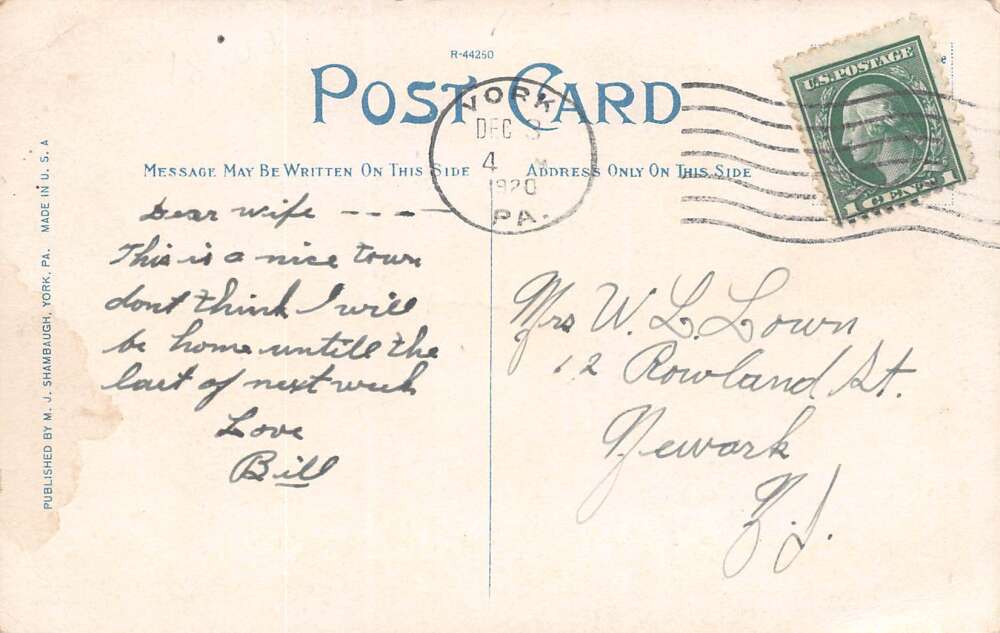 R-44250
POST CARD
MESSAGE MAY BE WRITTEN ON THIS SIDE
ADDRESS ONLY ON THIS SIDE
YORK
DEC 3
4 M
1920
PA.
U.S. POSTAGE
1 CENTS 1
Dear wife ----
This is a nice town
dont think I will
be home untill the
last of next week
Love
Bill
Mrs W. L. Lown
12 Rowland St.
Newark
N.J.
PUBLISHED BY M. J. SHAMBAUGH, YORK, PA. MADE IN U. S. A